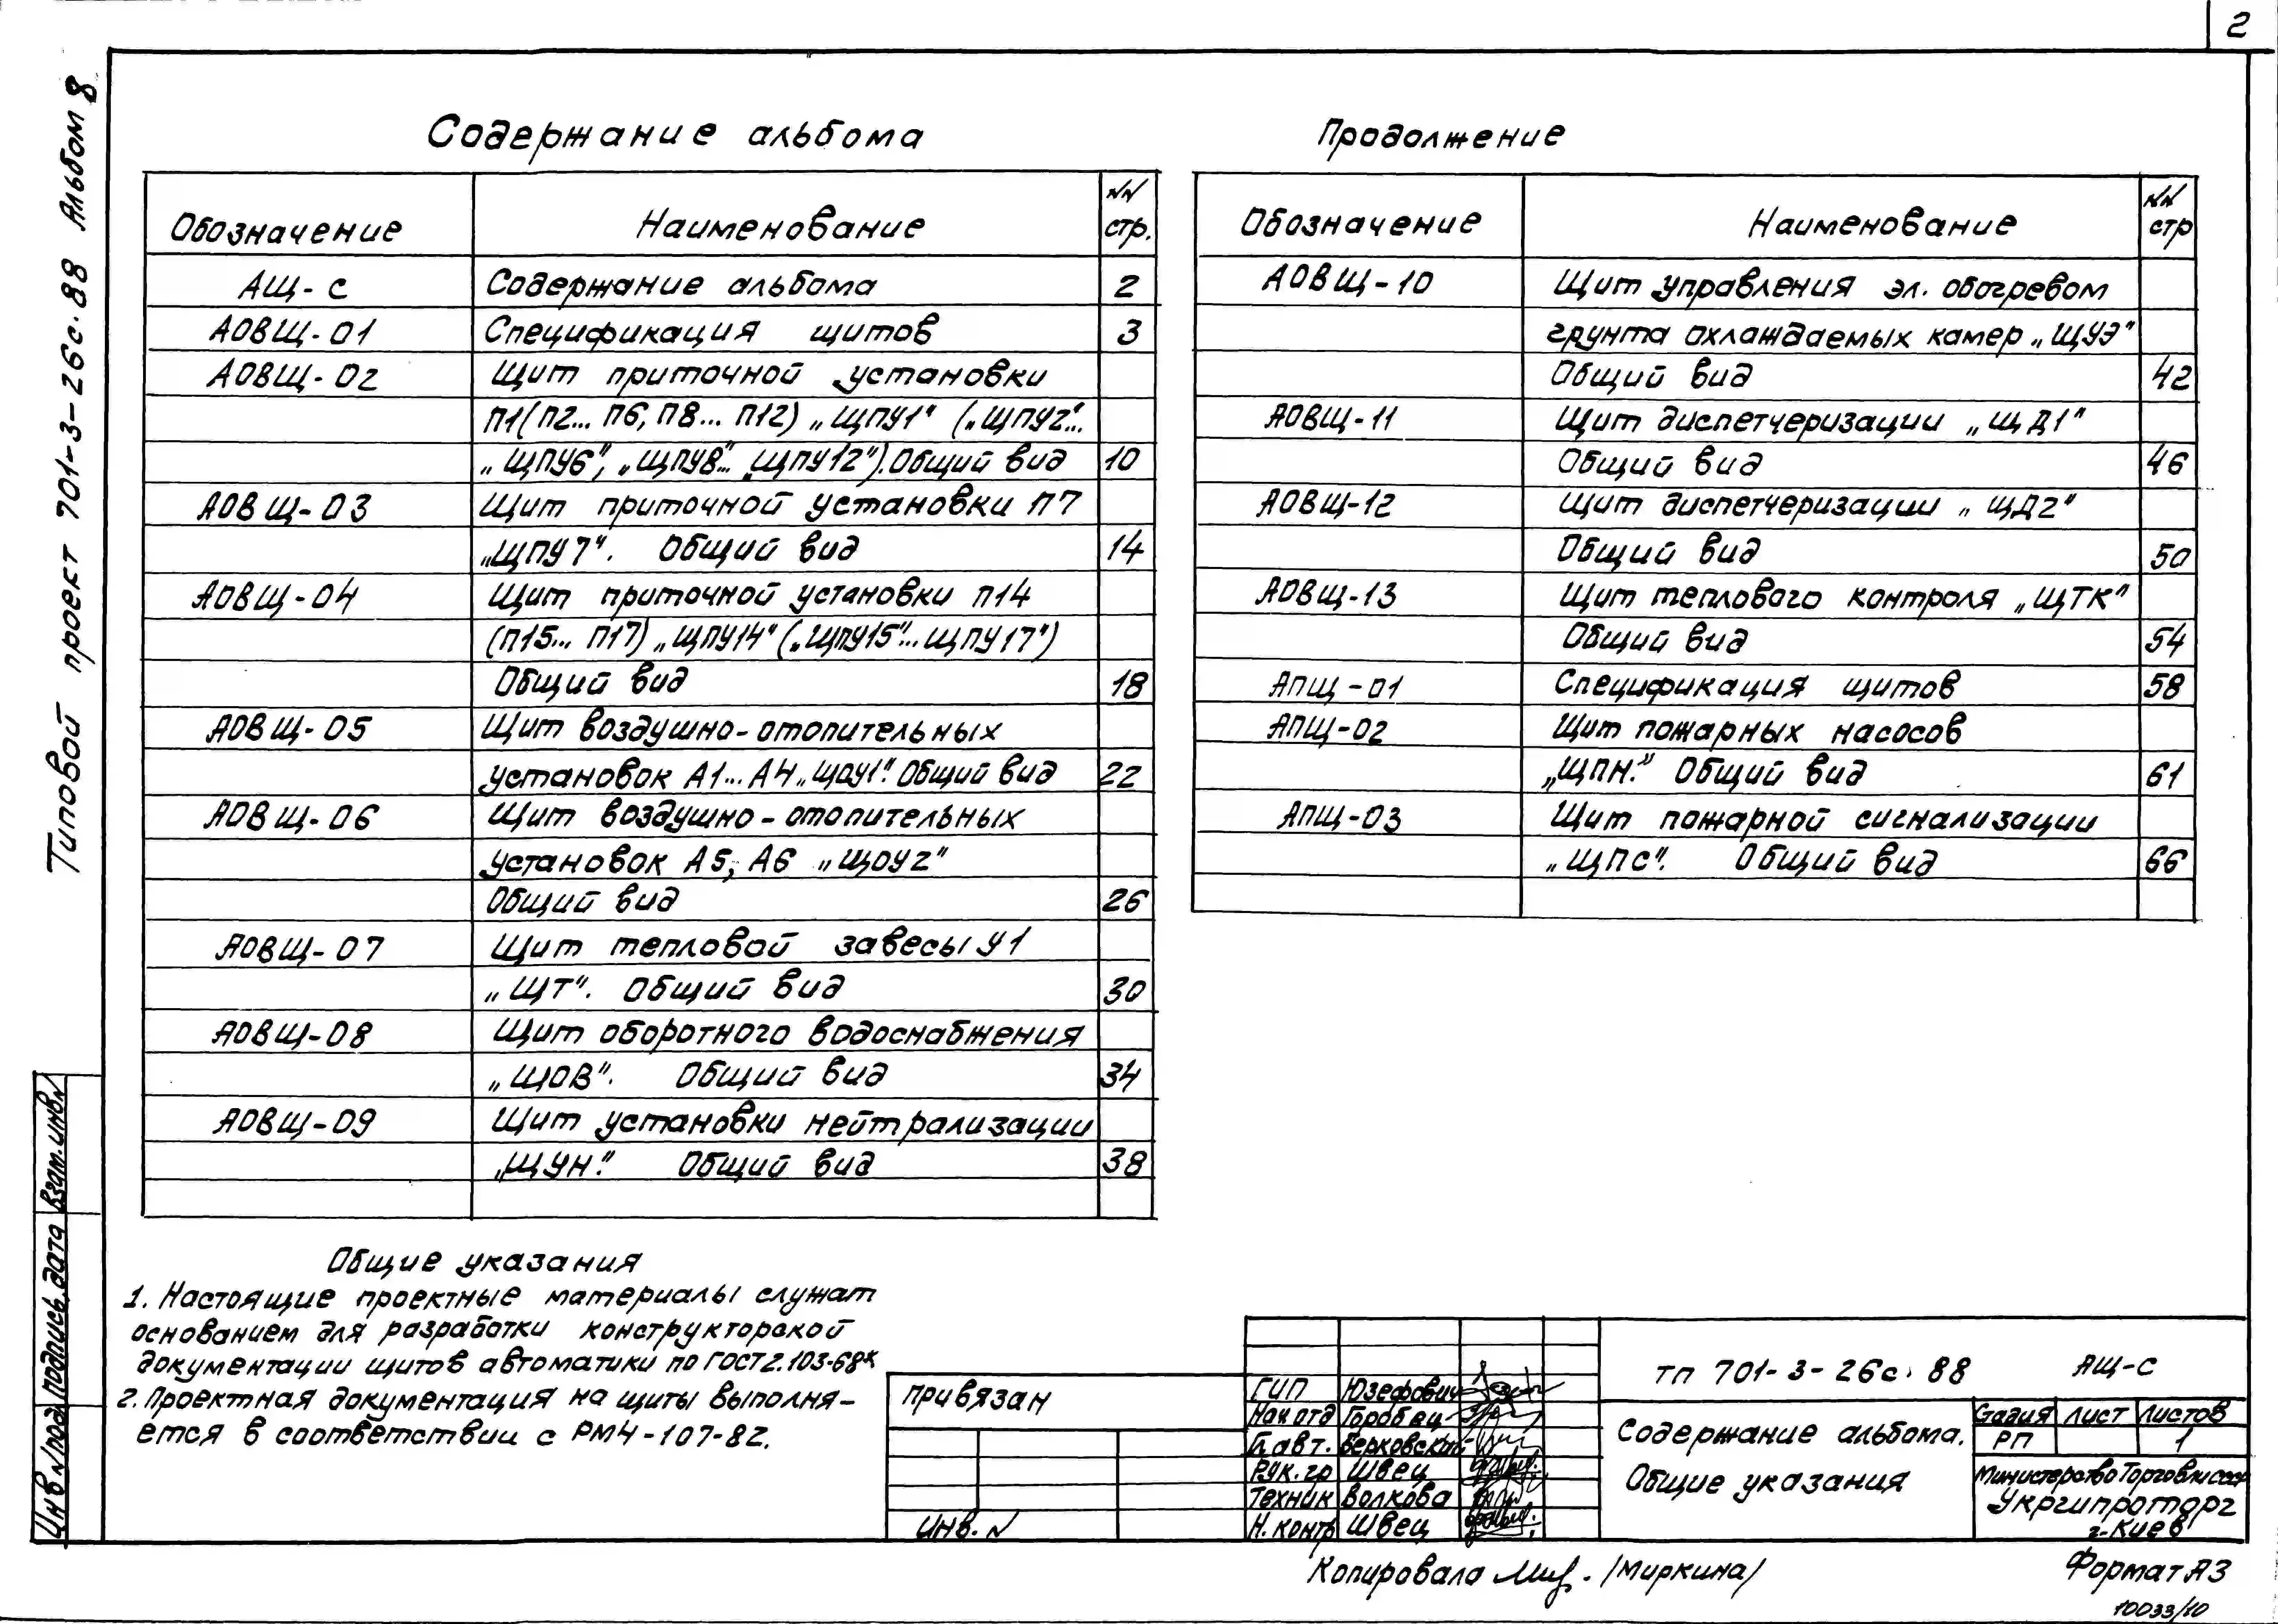 2
Типовой проект 701-3-26с.88 Альбом 8
Содержание альбома
Обозначение Наименование NN стр.
АЩ-с Содержание альбома 2
АОВЩ-01 Спецификация щитов 3
АОВЩ-02 Щит приточной установки
П1(П2... П6, П8... П12) „ЩПУ1" („ЩПУ2"...
„ЩПУ6", „ЩПУ8"... „ЩПУ12"). Общий вид 10
АОВЩ-03 Щит приточной установки П7
„ЩПУ7". Общий вид 14
АОВЩ-04 Щит приточной установки П14
(П15... П17) „ЩПУ14" („ЩПУ15"... ЩПУ17")
Общий вид 18
АОВЩ-05 Щит воздушно-отопительных
установок А1...А4 „ЩОУ1". Общий вид 22
АОВЩ-06 Щит воздушно-отопительных
установок А5, А6 „ЩОУ2"
Общий вид 26
АОВЩ-07 Щит тепловой завесы У1
„ЩТ". Общий вид 30
АОВЩ-08 Щит оборотного водоснабжения
„ЩОВ". Общий вид 34
АОВЩ-09 Щит установки нейтрализации
„ЩУН". Общий вид 38
Продолжение
Обозначение Наименование NN стр
АОВЩ-10 Щит управления эл. обогревом
грунта охлаждаемых камер „ЩУЭ"
Общий вид 42
АОВЩ-11 Щит диспетчеризации „ЩД1"
Общий вид 46
АОВЩ-12 Щит диспетчеризации „ЩД2"
Общий вид 50
АОВЩ-13 Щит теплового контроля „ЩТК"
Общий вид 54
АПЩ-01 Спецификация щитов 58
АПЩ-02 Щит пожарных насосов
„ЩПН". Общий вид 61
АПЩ-03 Щит пожарной сигнализации
„ЩПС". Общий вид 66
Общие указания
1. Настоящие проектные материалы служат
основанием для разработки конструкторской
документации щитов автоматики по ГОСТ 2.103-68*
2. Проектная документация на щиты выполня-
ется в соответствии с РМ4-107-82.
Взам. инв. N
Подпись, дата
Инв. N под
Привязан
Инв. N
ГИП Юзефович
Нач отд Горобец
Гл авт. Берковский
Рук. гр Швец
Техник Волкова
Н. контр Швец
ТП 701-3-26с.88 АЩ-С
Содержание альбома.
Общие указания
Стадия Лист Листов
РП 1
Министерство Торговли СССР
Укргипроторг
г. Киев
Копировала /Миркина/
Формат А3
10033/10